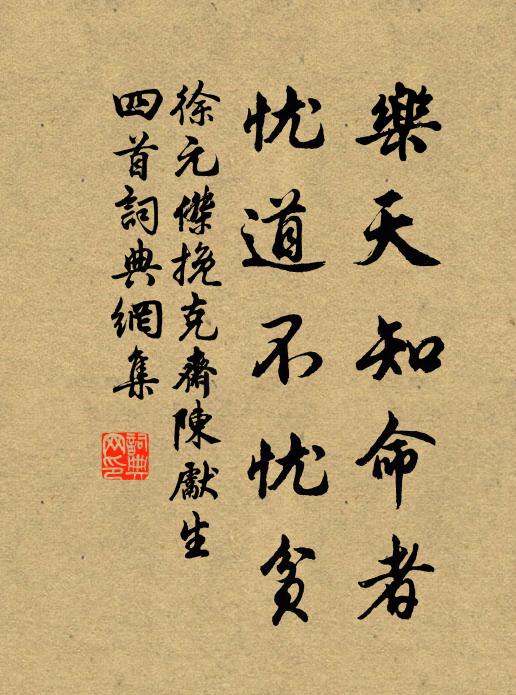 樂天知命者
忧道不忧貧
徐元傑挽克齋陳獻生
四首詞典網集
詞典
网印